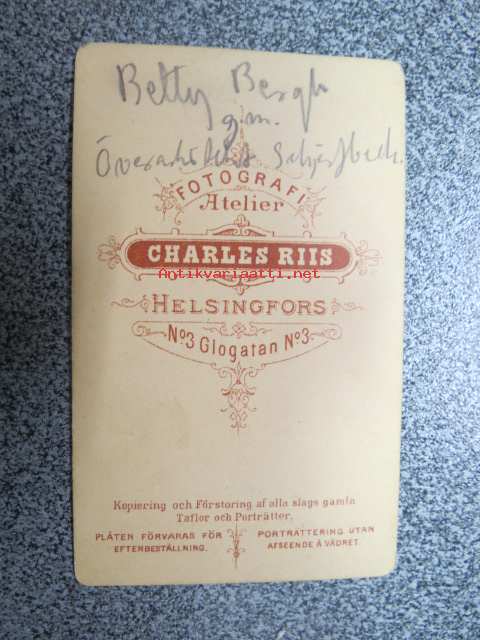 Betty Bergh
g.m.
Schjerfbeck.
FOTOGRAFI
Atelier
CHARLES RIIS
Antikvariaatti.net
HELSINGFORS
No3 Glogatan No3
Kopiering och Förstoring af alla slags gamla
Taflor och Porträtter.
PLÅTEN FÖRVARAS FÖR
EFTERBESTÄLLNING.
PORTRÄTTERING UTAN
AFSEENDE Å VÄDRET.